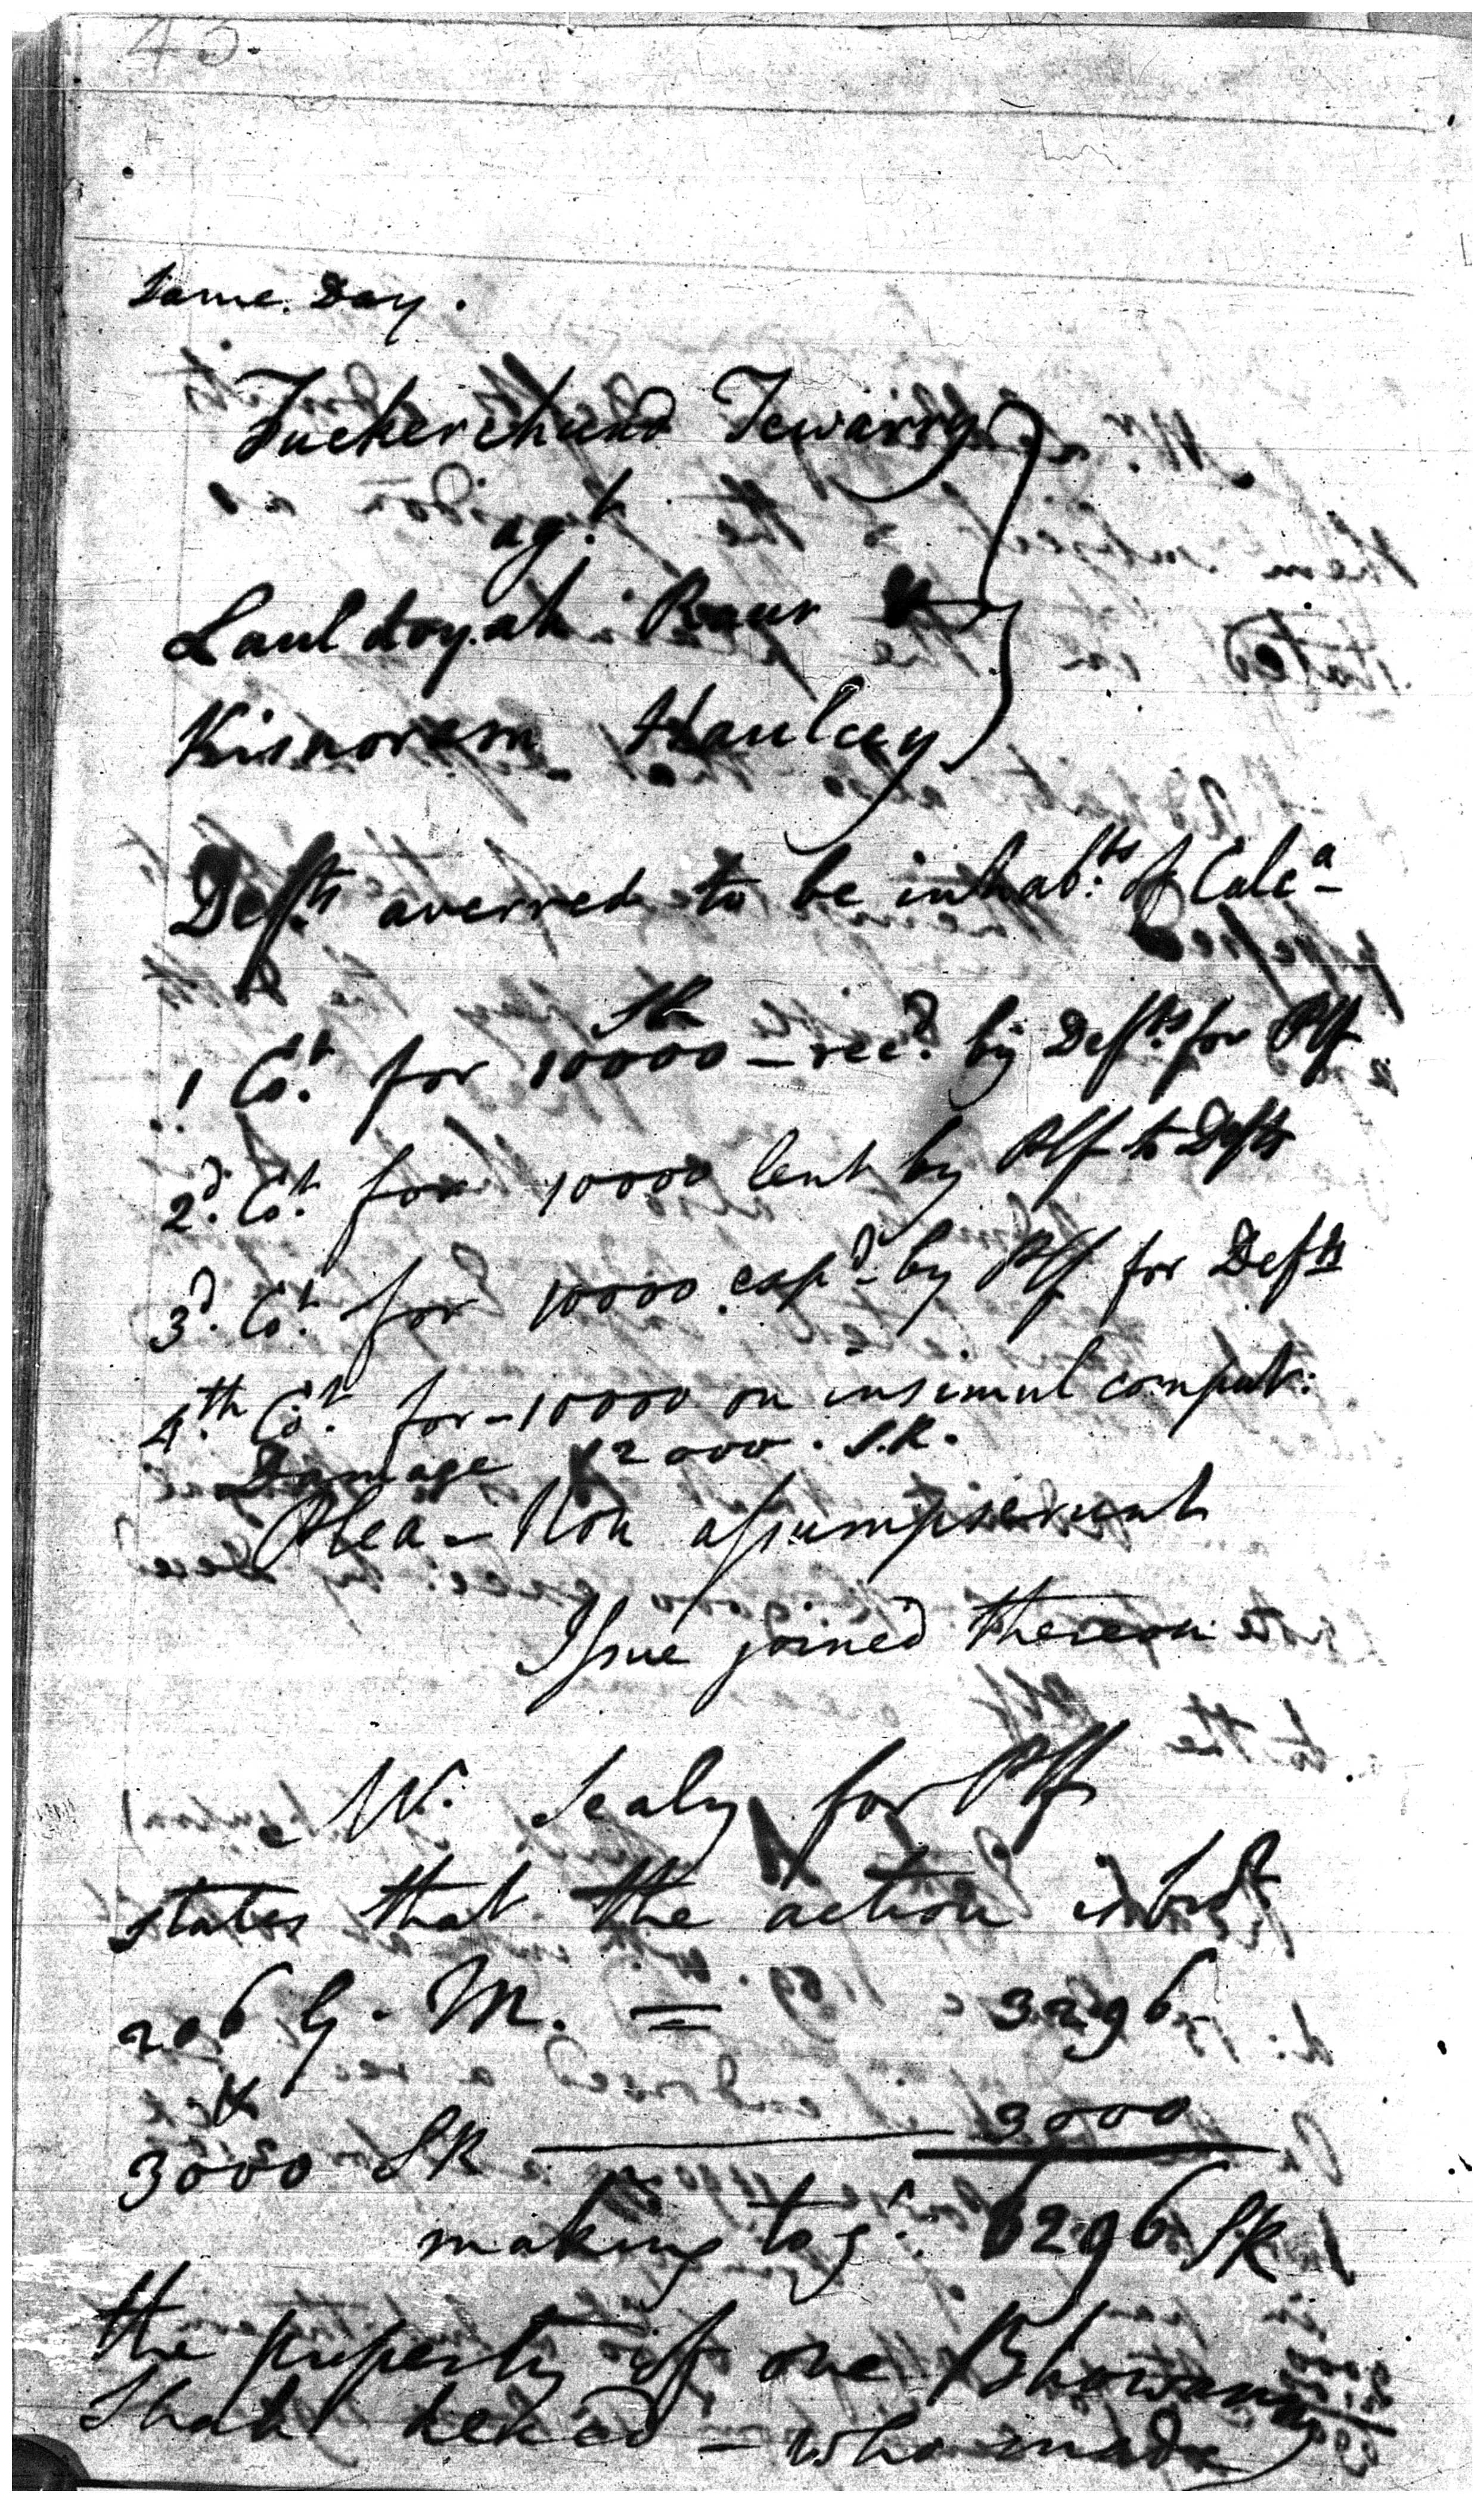 45
Same Day.
Tuckerchund Tewarry
agt.
Lauldoyah Raur &
Kisnoram Haulcey
Defts averred to be inhabts. of Calca
SR
1 Ct. for 10000 – recd. by Defts. for Plf
2d. Ct. for 10000 lent by Plf to Defts
3d. Ct. for 10000 expd. by Plf for Defts
4th. Ct. for – 10000 on insimul comput:
Damage 12000. S.R.
Plea – Non assumpserunt
Issue joined thereon
Mr. Sealy for Plf
states that the action is brot
206 G. M. = 3296
&
3000 SR 3000
making togr. 6296 SR
the property of one Bhowanny
Shah deced – who made